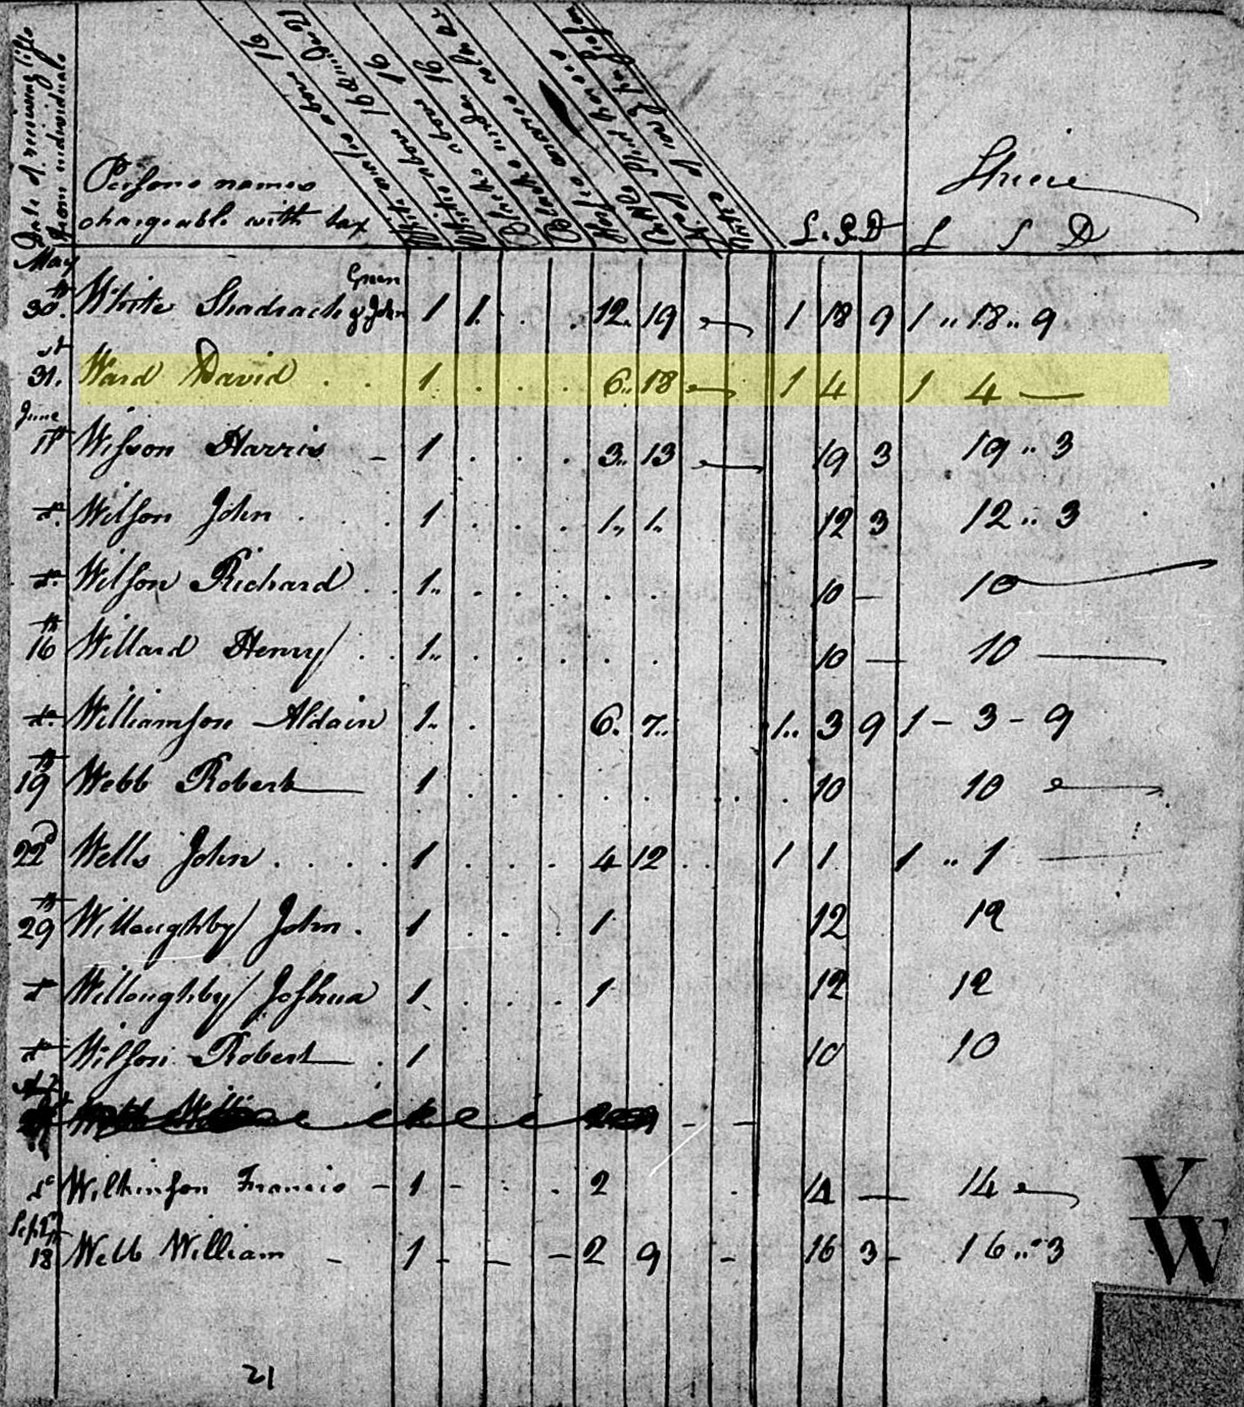 Date of receiving lists from individuals
Persons names
chargeable with tax
White males above 16
White above 16 & under 21
Blacks above 16
Blacks under 16
L. S. D
Specie
L S D
May
30th White Shadrach Green & John 1 1 . . 12 19 1 18 9 1 " 18 " 9
31st Ward David . . 1 . . . 6 18 1 4 1 4 —
June
11th Wilson Harris - 1 . . . 3 13 19 3 19 " 3
do. Wilson John . . . 1 . . . 1 1 12 3 12 " 3
do. Wilson Richard . . 1 . . . . . 10 — 10
16th Willard Henry . . 1 . . . . . 10 — 10 —
do. Williamson Aldain 1 . 6 7 1 3 9 1 - 3 - 9
19th Webb Robert 1 . . . . . 10 10
22d Wells John . . . . 1 . . . 4 12 . . 1 1 1 " 1 —
29th Willoughby John . 1 . . . 1 12 12
do Willoughby Joshua 1 . . . 1 12 12
do Wilson Robert . 1 10 10
do Wilkinson Francis - 1 - . . 2 . 14 — 14
Sept
18 Webb William - 1 - - - 2 9 - 16 3 - 16 " 3
V
W
21